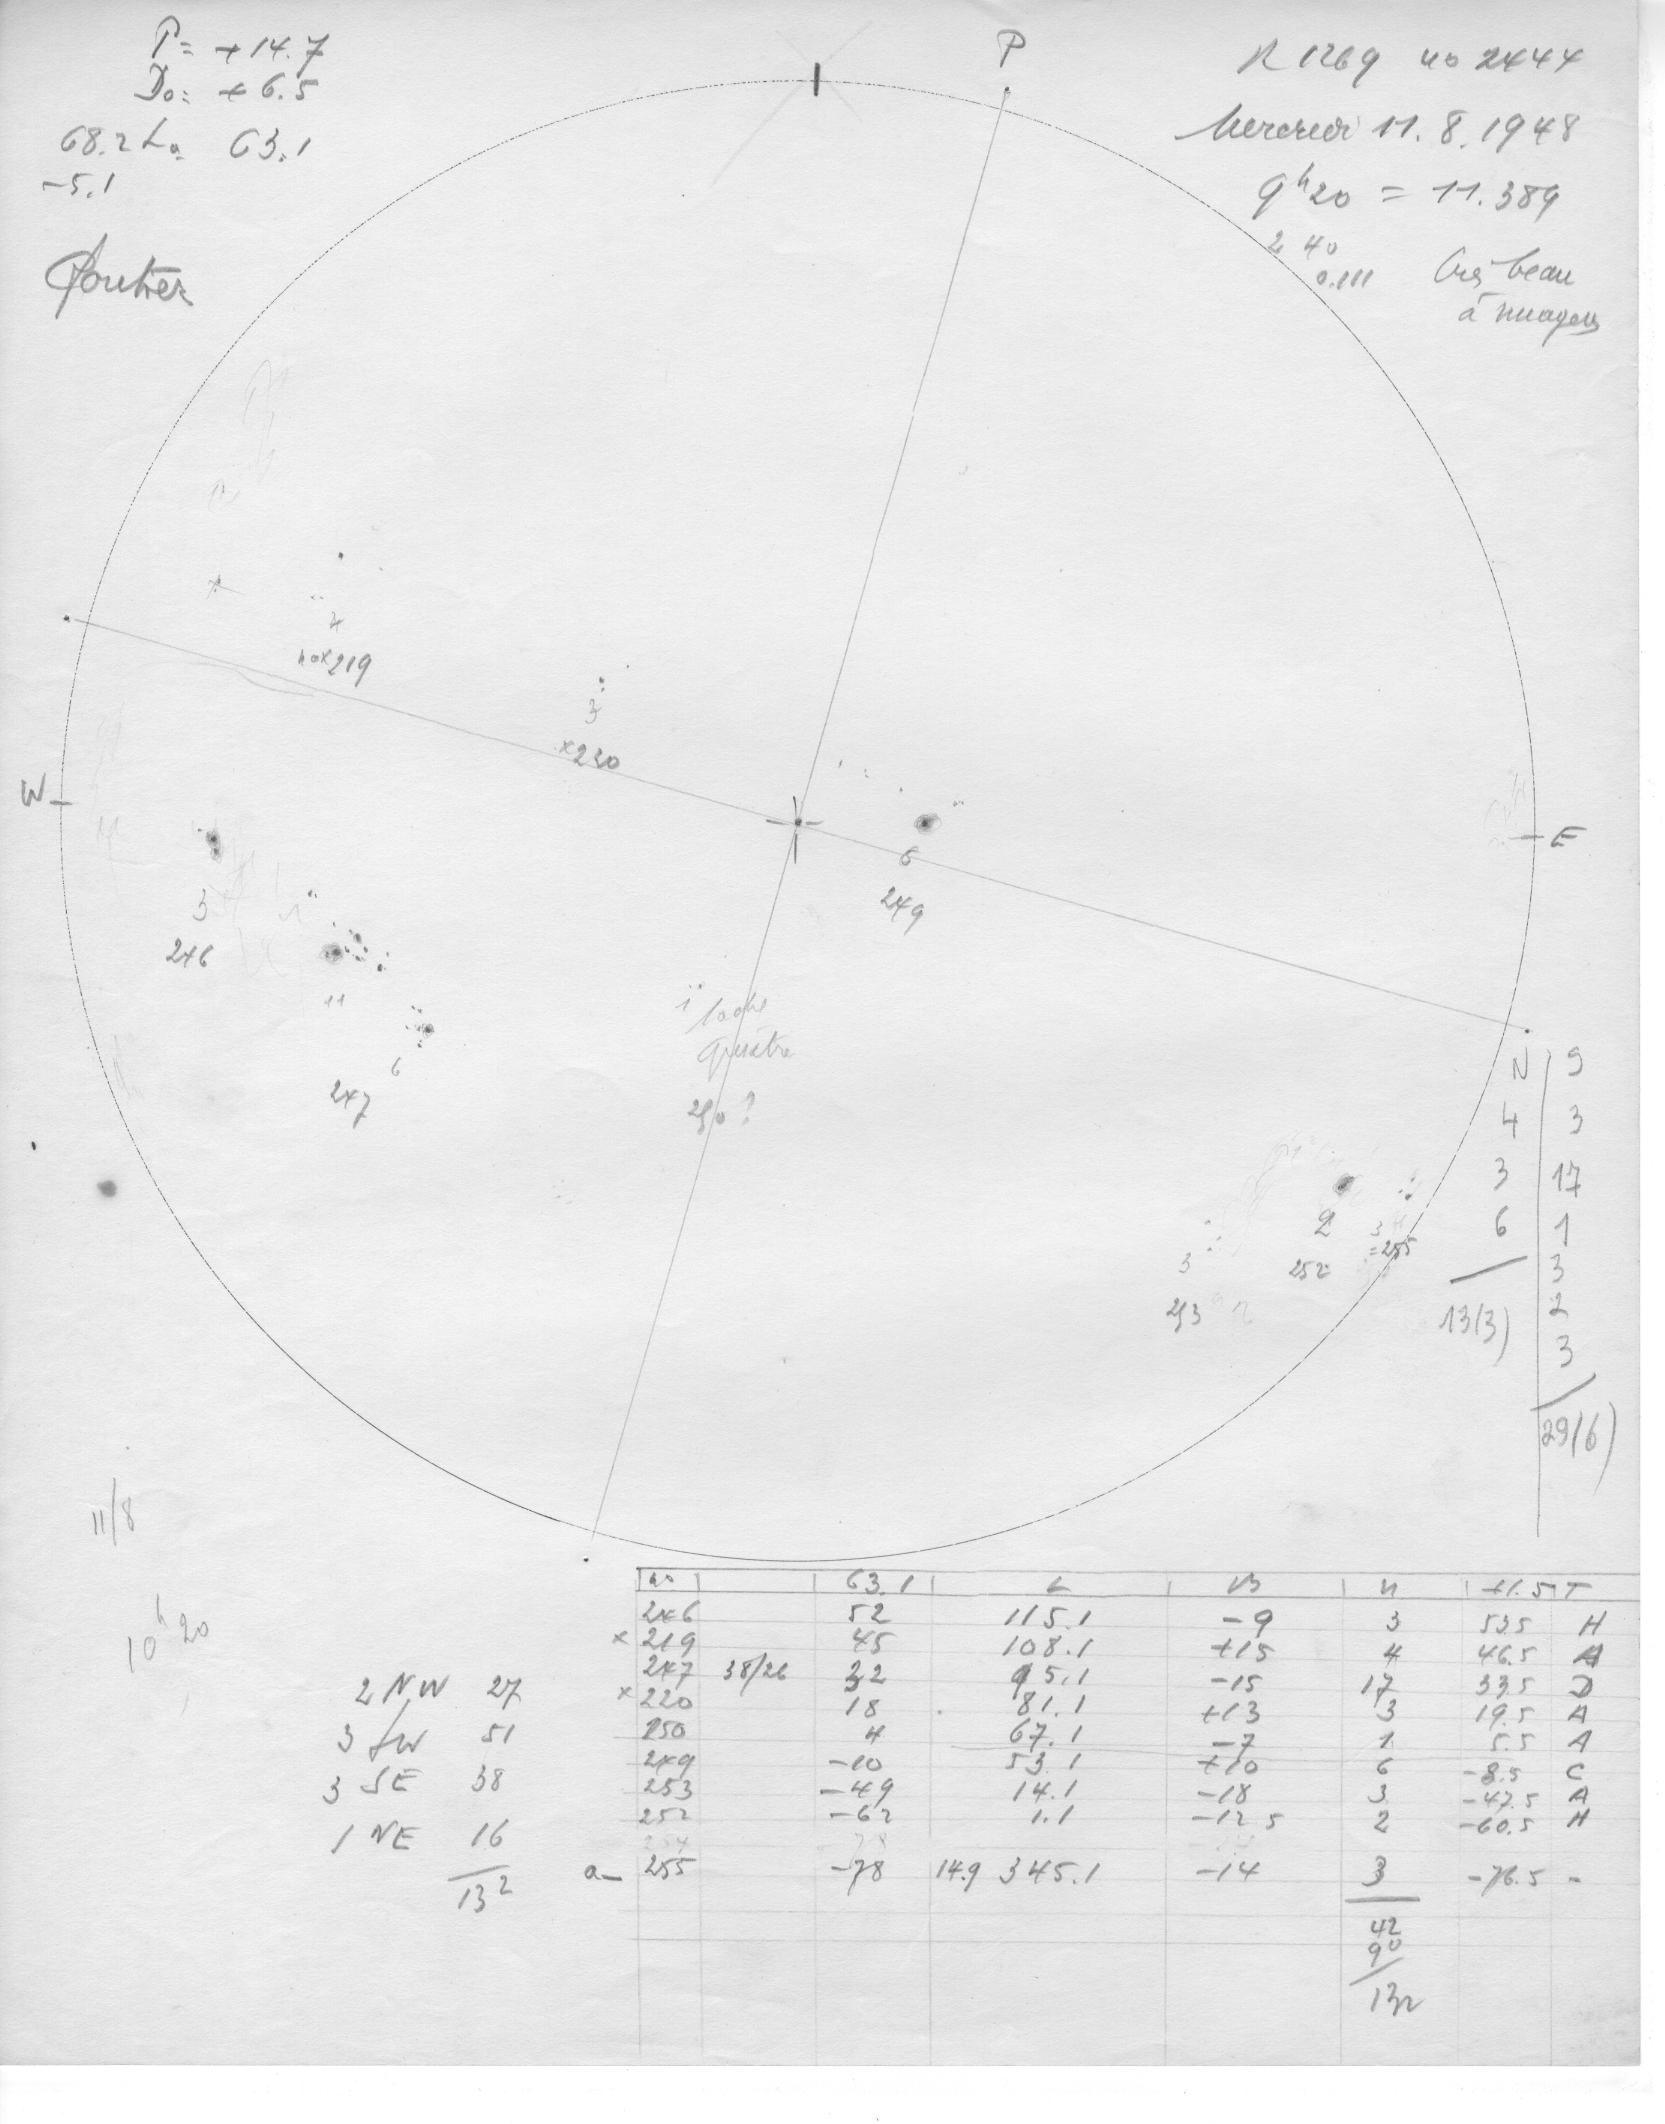 P = +14.7
Do = +6.5
68.2 Lo = 63.1
-5.1
P
R 1269 no 2444
Mercredi 11.8.1948
9h20 = 11.389
2 40
0.111
très beau
à nuageux
4
no x 219
3
x 220
W
E
6
249
3
246
11
6
247
1 tache
grisâtre
250 ?
3
253
2
252
3
= 255
N | S
4 | 3
3 | 17
6 | 1
3
13(3) | 2
3
29(6)
11/8
10h20
2 NW 27
3 SW 51
3 SE 38
1 NE 16
132
no 63.1 L B n +1.5 T
246 52 115.1 -9 3 53.5 H
x 219 45 108.1 +15 4 46.5 A
247 38/26 32 95.1 -15 17 33.5 D
x 220 18 81.1 +13 3 19.5 A
250 4 67.1 -7 1 5.5 A
249 -10 53.1 +10 6 -8.5 C
253 -49 14.1 -18 3 -47.5 A
252 -62 1.1 -12.5 2 -60.5 H
a- 255 -78 14.9 345.1 -14 3 -76.5 -
42
90
132